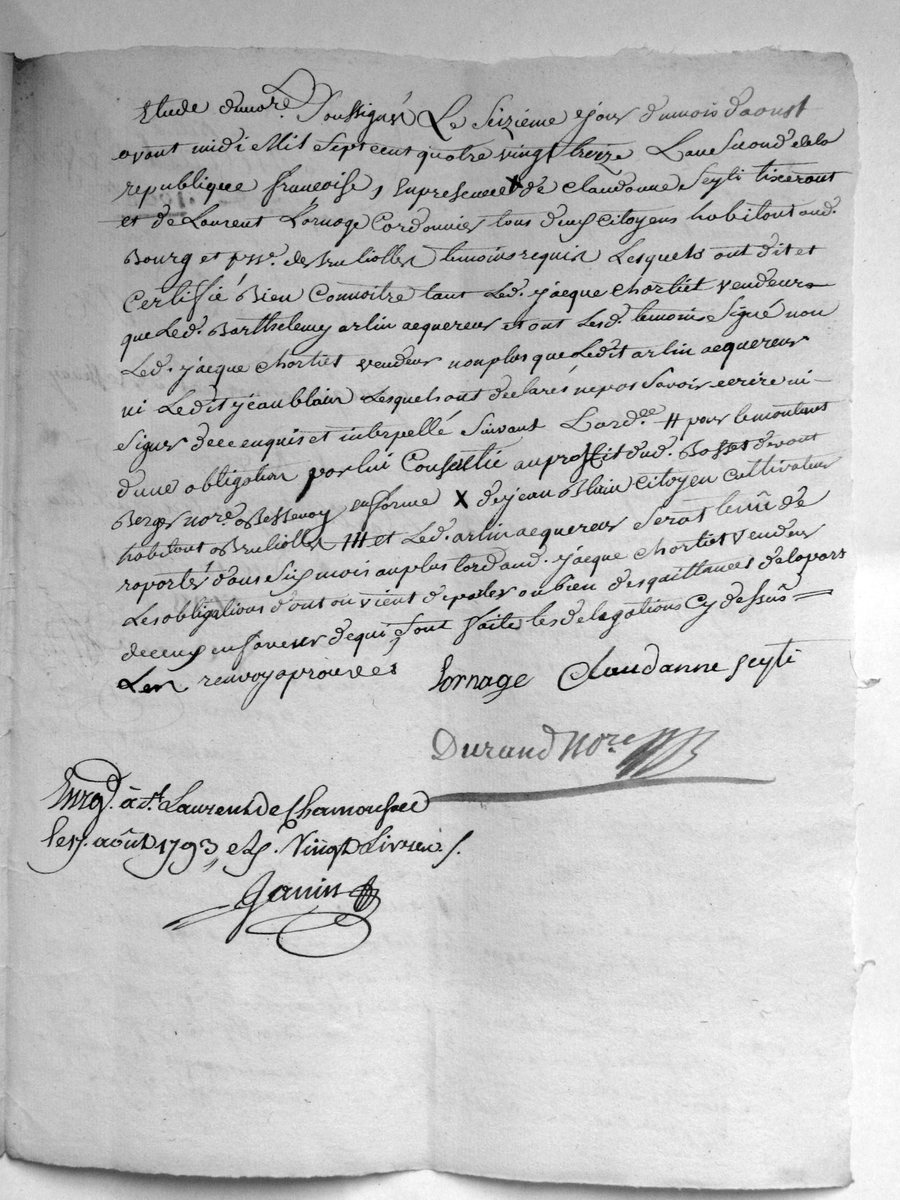 Etude du nore. soussigné Le seizième jour du mois d'aoust
avant midi Mil sept cent quatre vingt treize L'an second de la
republique francoise, En presence de Claudanne Seyti tixerant
et de Laurent Lornage Cordonnier tous deux citoyens habitant aud.
Bourg et psse. de Brulliolles temoins requis Lesquels ont dit et
Certifié Bien Connoitre tant Led. jacque chortiet vendeur
que Led. Barthelemy arlin aequereur et ont Lesd. temoins Signé non
Led. jacque chortiet vendeur non plus que Ledit arlin aequereur
ni Ledit jean blain Lesquels ont declarés ne pas Savoir ecrire ni
Signer de ce enquis et interpellé Suivant L'ordce # pour le montant
d'une obligation par lui Consentie au profit dud. Bosset devant
Berger nore. Bessenay en forme X de jean Blain citoyen cultivateur
habitant a Brulliolles ## et Led. arlin aequereur Serat tenû de
raporter dans Six mois au plus tard aud. jacque chortiet vendeur
Les obligations dont on vient de parler ou bien des quittances de la part
de ceux en faveur de qui sont faite les delegations Cy dessus =
Les renvoy aprouvés Lornage Claudanne Seyti
Durand Nore
Enrg. à St. Laurent de Chamousset
le 17. août 1793, R. Vingt Livres /.
Ganin